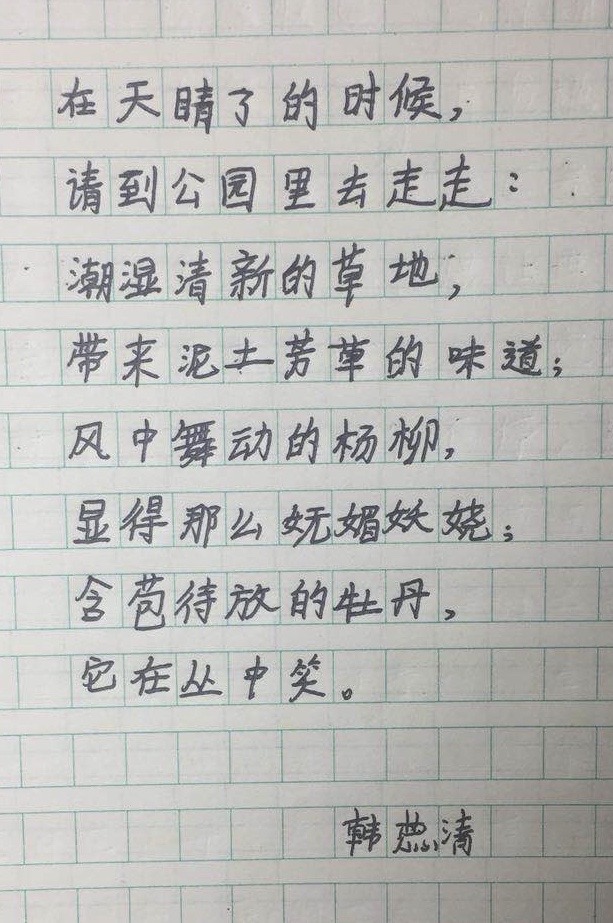 在天晴了的时候，
请到公园里去走走：
潮湿清新的草地，
带来泥土芳草的味道；
风中舞动的杨柳，
显得那么妩媚妖娆；
含苞待放的牡丹，
它在丛中笑。
韩清